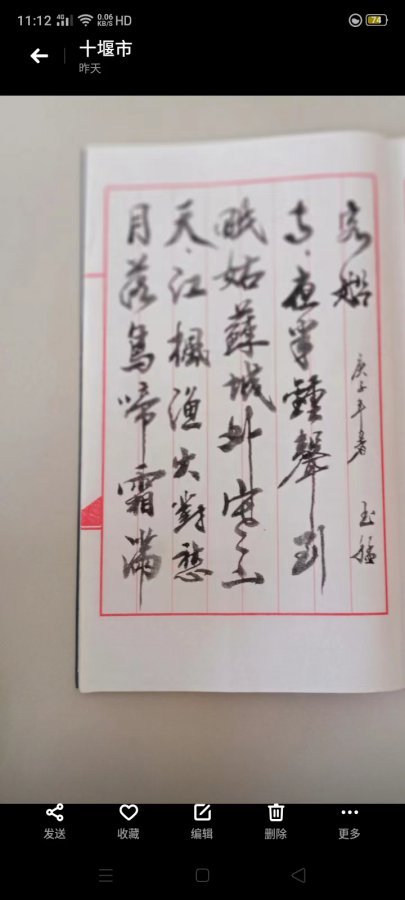 11:12 4G 0.06 KB/S HD 74
十堰市
昨天
月落烏啼霜滿
天、江楓漁火對愁
眠姑蘇城外寒山
寺、夜半鐘聲到
客船
庚子年 玉
发送
收藏
编辑
删除
更多